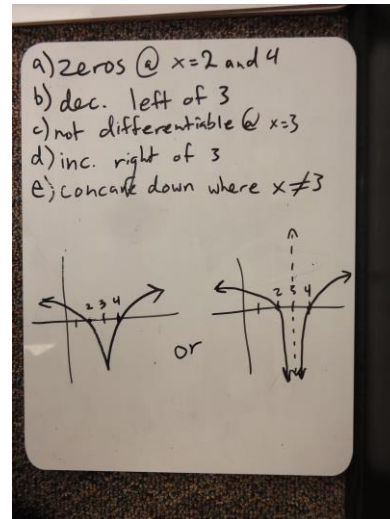 a) zeros @ x=2 and 4
b) dec. left of 3
c) not differentiable @ x=3
d) inc. right of 3
e) concave down where x≠3
2 3 4
or
2 3 4